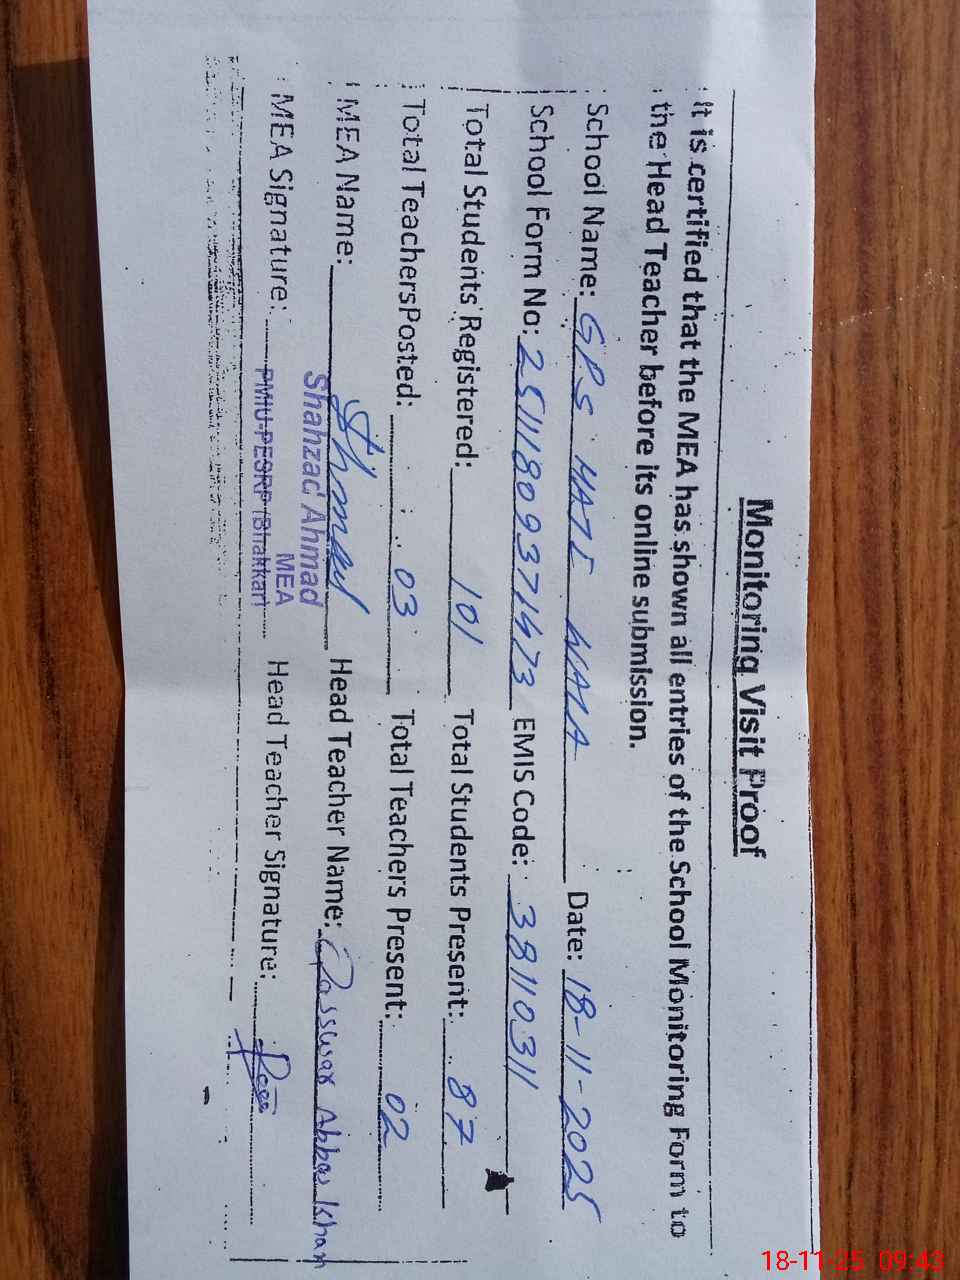 Monitoring Visit Proof
It is certified that the MEA has shown all entries of the School Monitoring Form to
the Head Teacher before its online submission.
School Name: GPS HATI WALA Date: 18-11-2025
School Form No: 25111809371473 EMIS Code: 38110311
Total Students Registered: 101 Total Students Present: 87
Total Teachers Posted: 03 Total Teachers Present: 02
MEA Name: Head Teacher Name: Abbas Khan
Shahzad Ahmad
MEA
MEA Signature: PMIU-PESRP (Bhakkar) Head Teacher Signature:
18-11-25 09:43